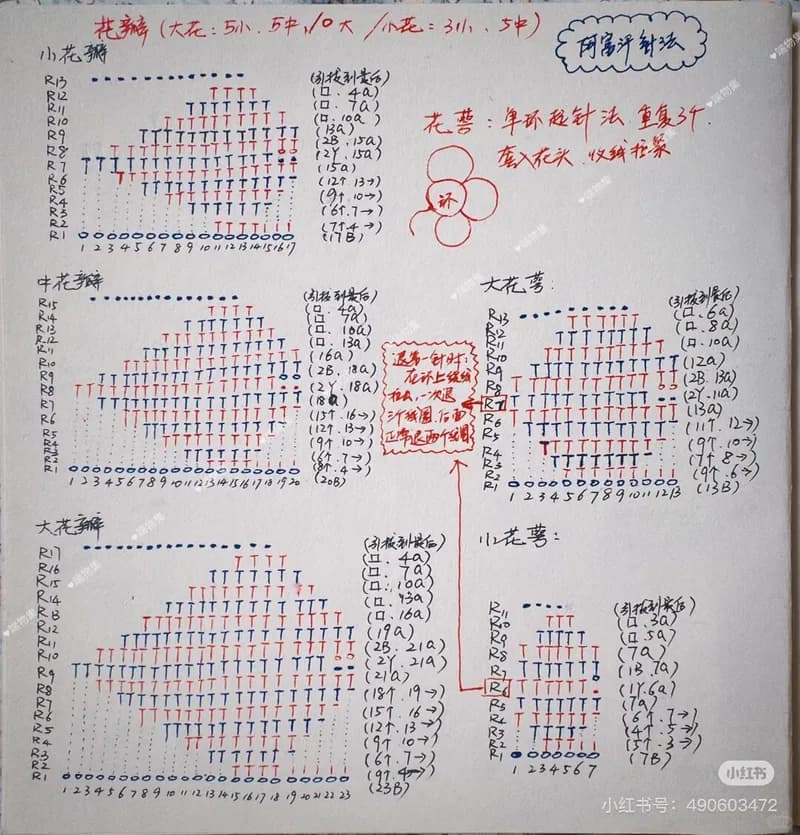 花瓣(大花:5小、5中,10大 /小花:3小、5中)
阿富汗针法
小花瓣
R13 (引拔到最后)
R12 (口、4a)
R11 (口、7a)
R10 (口、10a)
R9 (13a)
R8 (2B、15a)
R7 (2Y、15a)
R6 (15a)
R5 (12↑ 13→)
R4 (9↑、10→)
R3 (6↑、7→)
R2 (7↑、4→)
R1 (17B)
1 2 3 4 5 6 7 8 9 10 11 12 13 14 15 16 17
花萼:单环起针法 重复3个
套入花头、收线拉紧
环
中花瓣
R15 (引拔到最后)
R14 (口、4a)
R13 (口、7a)
R12 (口、10a)
R11 (口、13a)
R10 (16a)
R9 (2B、18a)
R8 (2Y、18a)
R7 (18a)
R6 (15↑、16→)
R5 (12↑、13→)
R4 (9↑、10→)
R3 (6↑、7→)
R2 (8↑、4→)
R1 (20B)
1 2 3 4 5 6 7 8 9 10 11 12 13 14 15 16 17 18 19 20
退第一针时:
在环上绕线
拉出,一次退
三个线圈,后面
正常退两个线圈
大花萼:
R13 (引拔到最后)
R12 (口、6a)
R11 (口、8a)
R10 (口、10a)
R9 (12a)
R8 (2B、13a)
R7 (2Y、11a)
R6 (13a)
R5 (11↑、12→)
R4 (9↑、10→)
R3 (7↑、8→)
R2 (9↑、6→)
R1 (13B)
1 2 3 4 5 6 7 8 9 10 11 12 13
大花瓣
R17 (引拔到最后)
R16 (口、4a)
R15 (口、7a)
R14 (口、10a)
R13 (口、13a)
R12 (口、16a)
R11 (19a)
R10 (2B、21a)
R9 (2Y、21a)
R8 (21a)
R7 (18↑、19→)
R6 (15↑、16→)
R5 (12↑、13→)
R4 (9↑、10→)
R3 (6↑、7→)
R2 (9↑、4→)
R1 (23B)
1 2 3 4 5 6 7 8 9 10 11 12 13 14 15 16 17 18 19 20 21 22 23
小花萼:
R11 (引拔到最后)
R10 (口、3a)
R9 (口、5a)
R8 (7a)
R7 (1B、7a)
R6 (1Y、6a)
R5 (7a)
R4 (6↑、7→)
R3 (4↑、5→)
R2 (5↑、3→)
R1 (7B)
1 2 3 4 5 6 7
小红书
小红书号:490603472